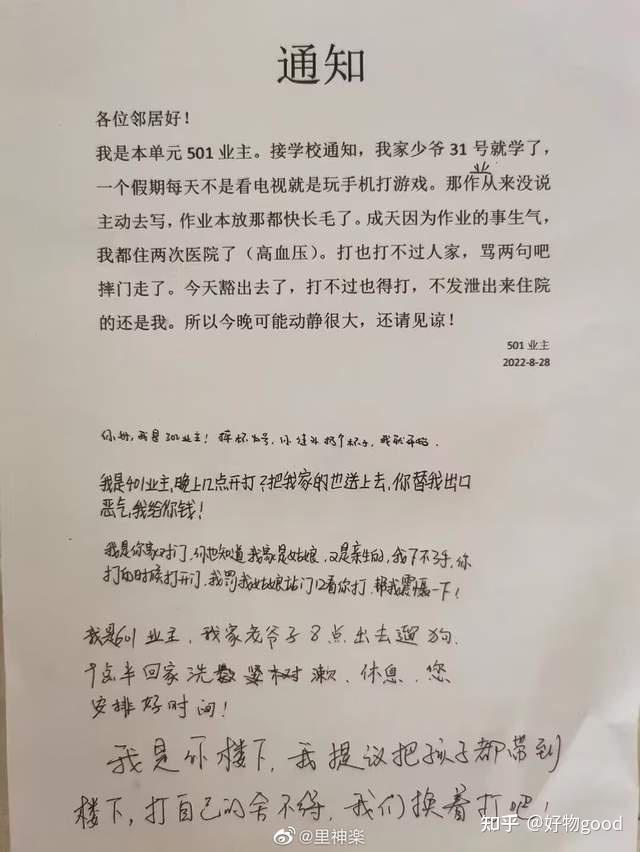 通知
各位邻居好！
我是本单元 501 业主。接学校通知，我家少爷 31 号就学了，
一个假期每天不是看电视就是玩手机打游戏。那作业从来没说
主动去写，作业本放那都快长毛了。成天因为作业的事生气，
我都住两次医院了（高血压）。打也打不过人家，骂两句吧
摔门走了。今天豁出去了，打不过也得打，不发泄出来住院
的还是我。所以今晚可能动静很大，还请见谅！
501 业主
2022-8-28
你好，我是302业主！摔杯为号，你这头扔个杯子，我就开始。
我是401业主，晚上几点开打？把我家的也送上去，你替我出口
恶气，我给你钱！
我是你家对门，你也知道我家是姑娘，又是亲生的，我下不了手，你
打的时候打开门，我罚我姑娘站门口看你打，帮我震慑一下！
我是601业主，我家老爷子8点出去遛狗，
十点半回家洗漱、休息，您
安排好时间！
我是你楼下，我提议把孩子都带到
楼下，打自己的舍不得，我们换着打吧！
知乎 @好物good
@里神楽